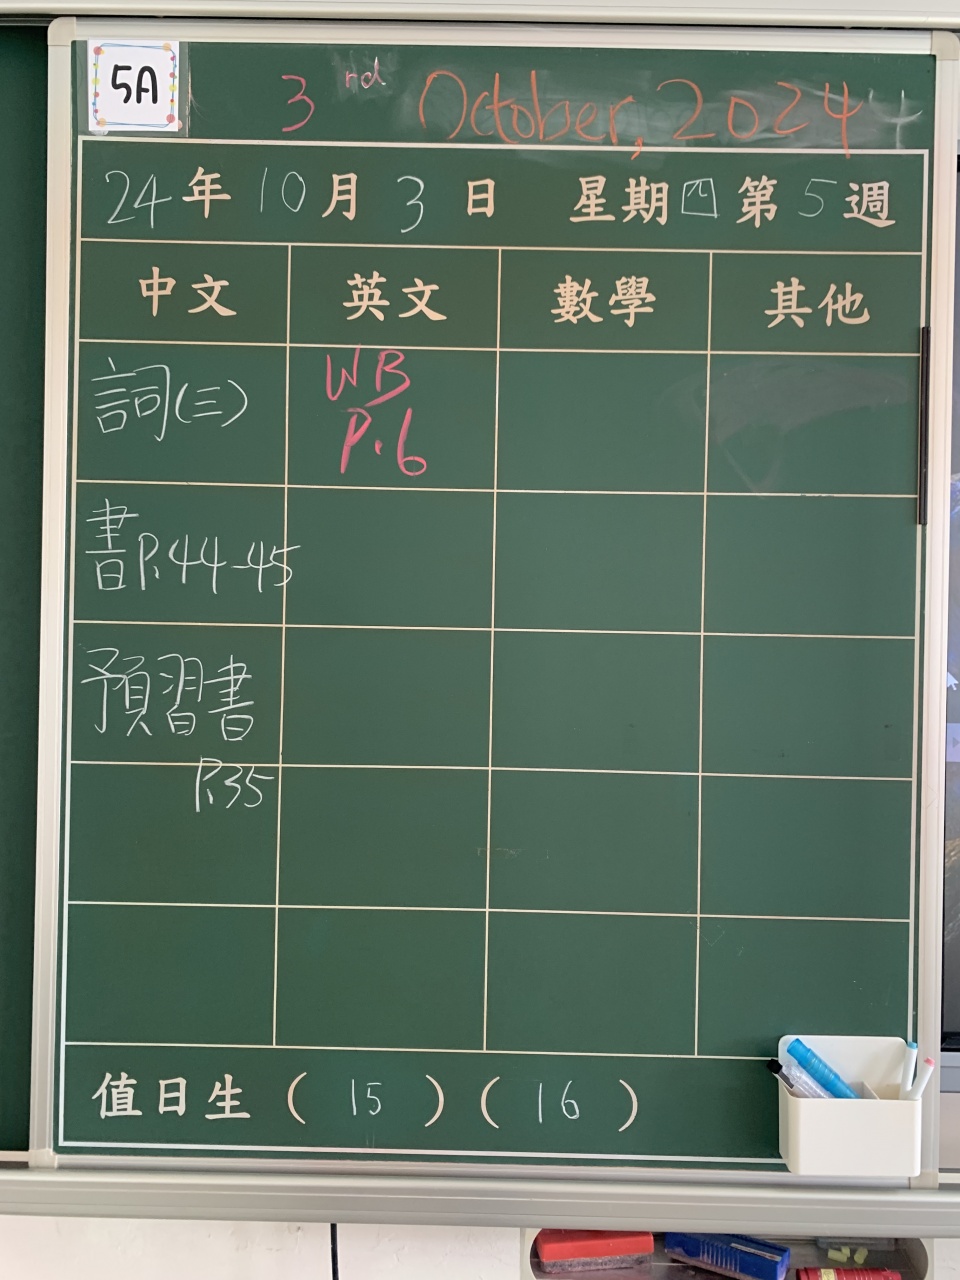 5A
3rd October, 2024
24年10月3日 星期四第5週
中文 英文 數學 其他
詞(三) WB
P.6
書P.44-45
預習書
P.35
值日生(15)(16)